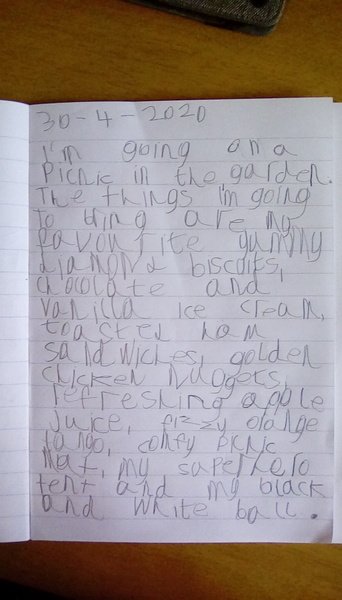 30-4-2020
I'm going on a
Picnic in the garden.
The things I'm going
to bring are my
favourite yummy
diamond biscuits,
chocolate and
vanilla ice cream,
toasted ham
sandwiches, golden
chicken nuggets,
refreshing apple
juice, fizzy orange
tango, comfy picnic
mat, my superhero
tent and my black
and white ball.